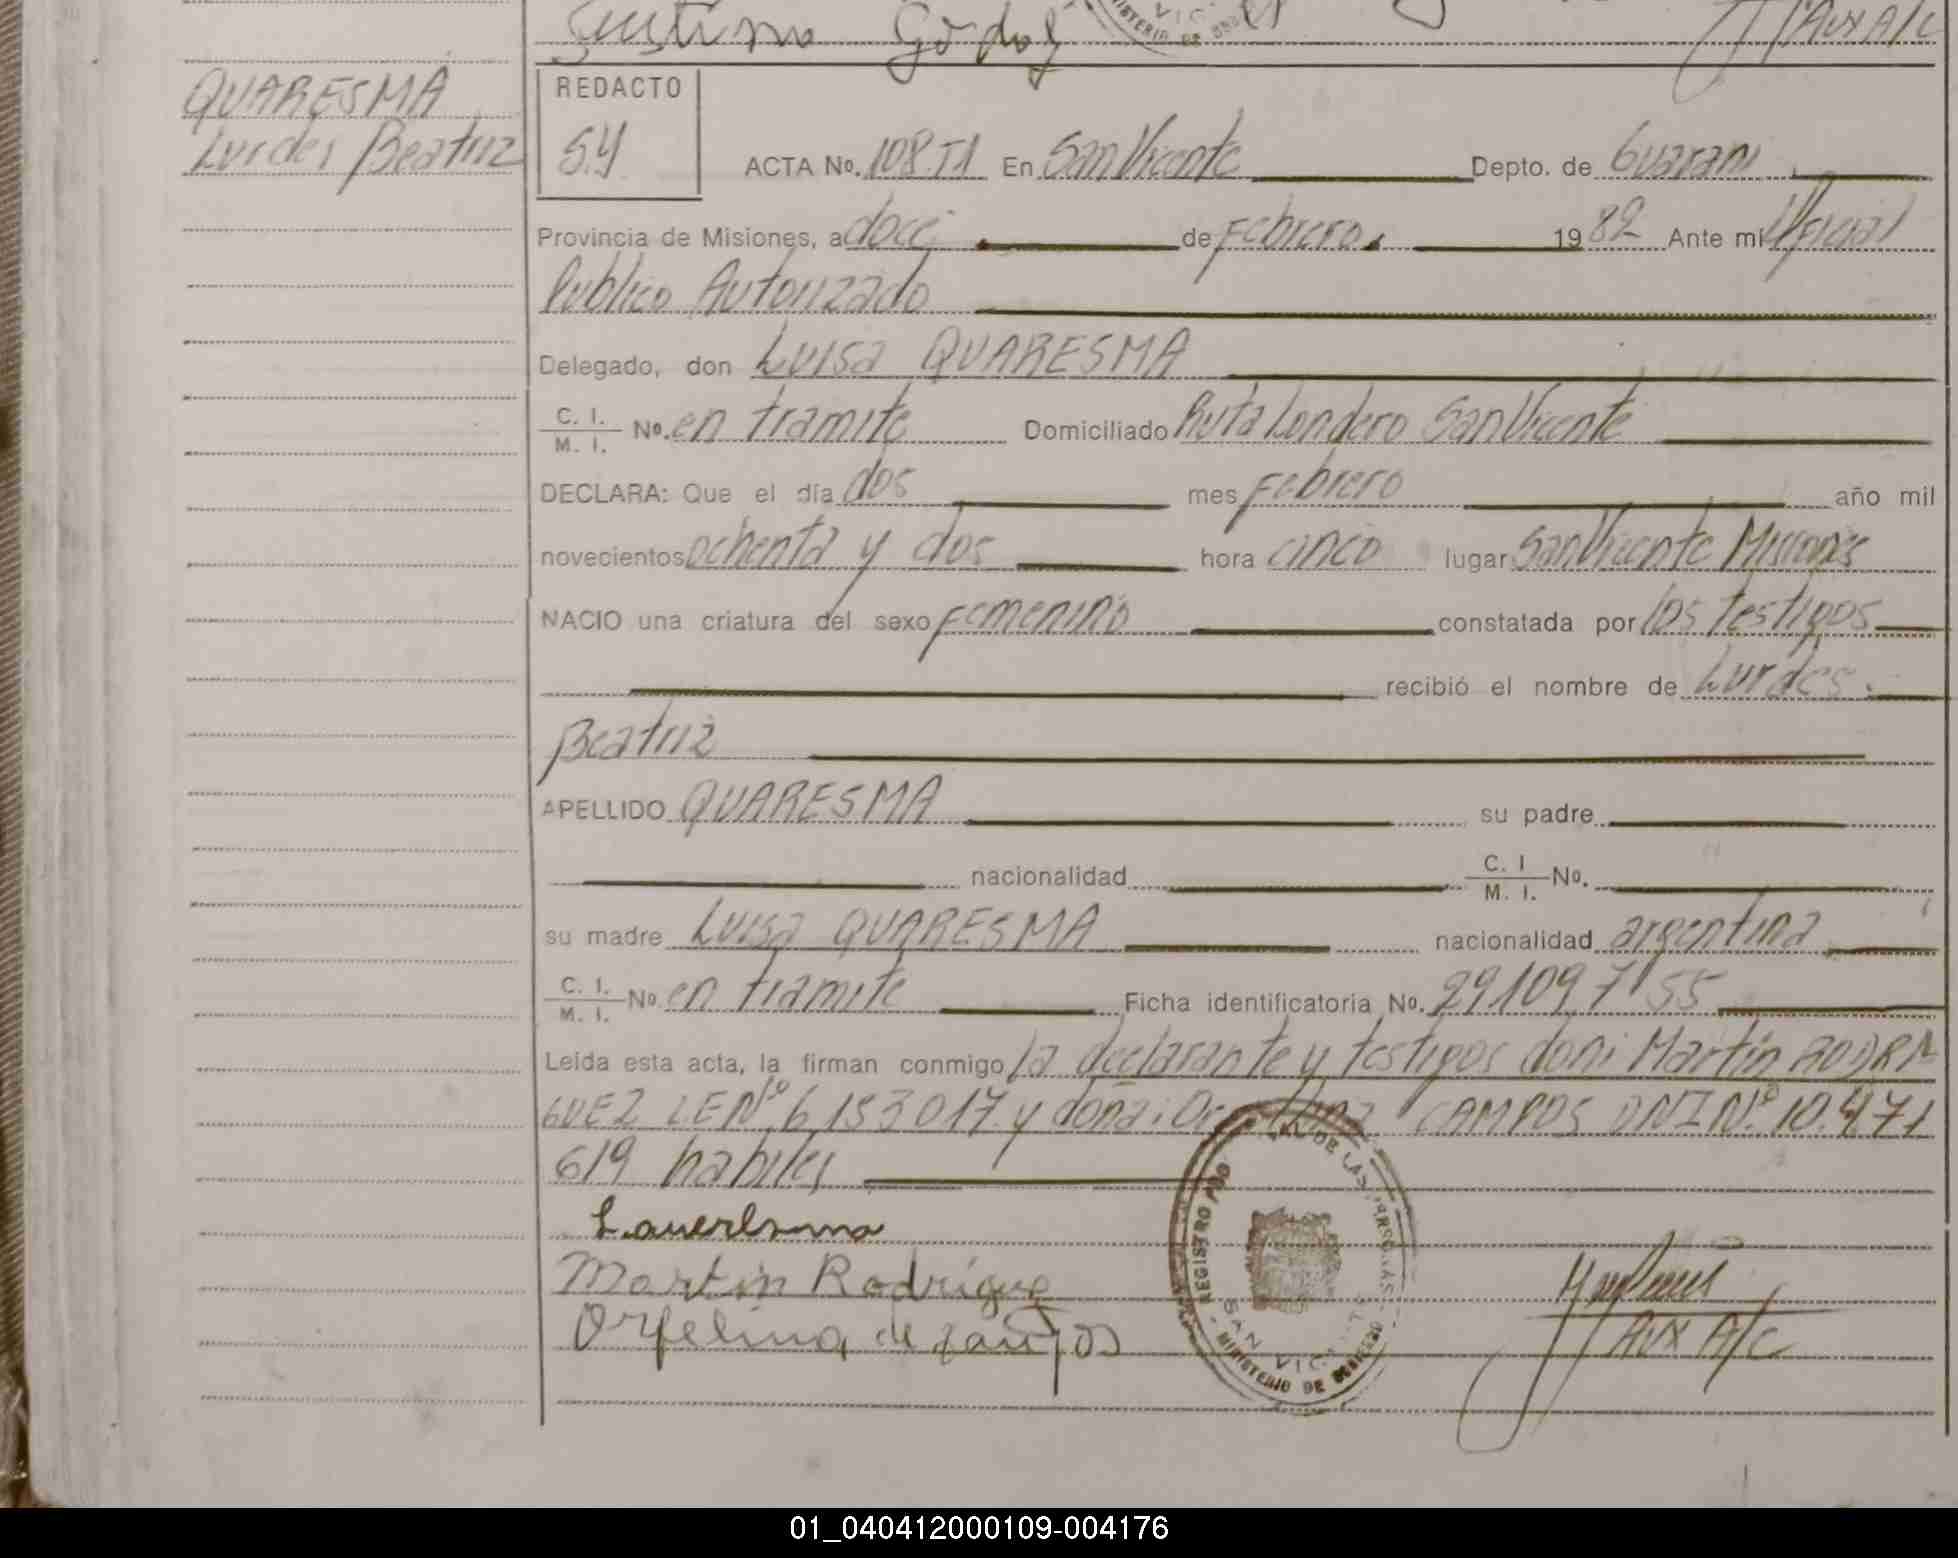 Justino Godoy
Aux A/C
QUARESMA
Lurdes Beatriz
REDACTO
S.Y
ACTA No. 108.T1 En San Vicente Depto. de Guarani
Provincia de Misiones, a doce de Febrero 19 82 Ante mi Oficial
Publico Autorizado
Delegado, don Luisa QUARESMA
C. I. / M. I. No. en tramite Domiciliado Ruta Londero San Vicente
DECLARA: Que el día dos mes Febrero año mil
novecientos ochenta y dos hora cinco lugar San Vicente Misiones
NACIO una criatura del sexo Femenino constatada por los testigos
recibió el nombre de Lurdes
Beatriz
APELLIDO QUARESMA su padre
nacionalidad C. I / M. I. No.
su madre Luisa QUARESMA nacionalidad argentina
C. I. / M. I. No. en tramite Ficha identificatoria No. 29.109.7 55
Leida esta acta, la firman conmigo la declarante y testigos don: Martín RODRI
GUEZ LE Nº 6.153.017 y doña: CAMPOS DNI Nº 10.471
619 habiles
Martin Rodrigue
Orfelina de campos
REGISTRO PRO AL DE LAS PERSONAS
SAN VICENTE
MINISTERIO DE GOBIERNO
Aux A/C
01_040412000109-004176